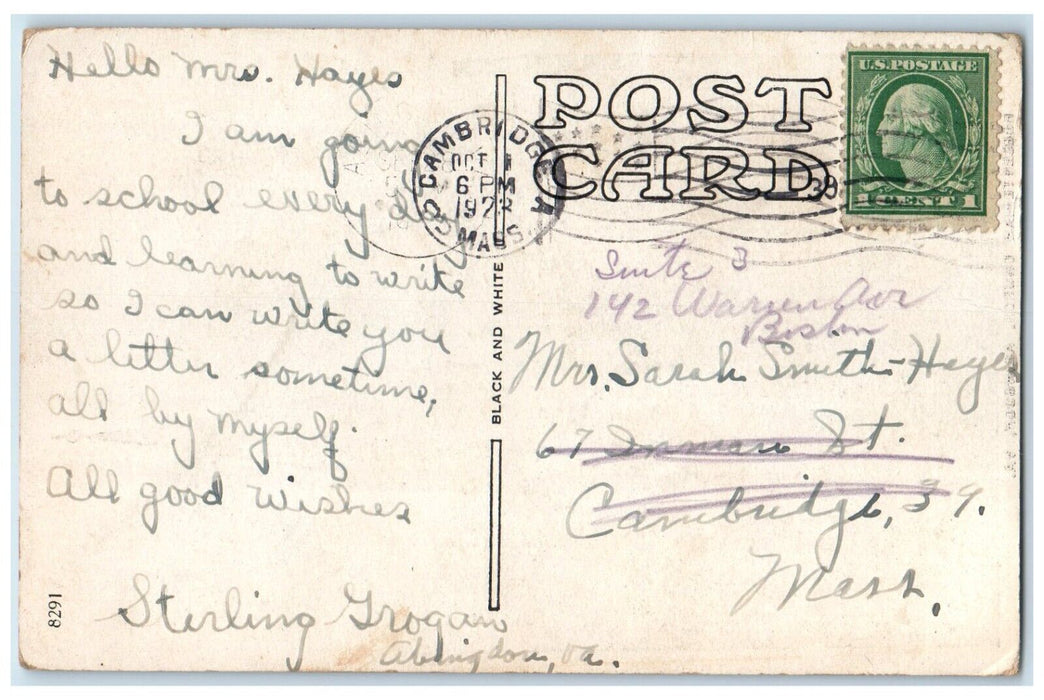 Hello Mrs. Hayes
I am going
to school every day
and learning to write
so I can write you
a letter sometime,
all by myself.
All good wishes
Sterling Grogan
Abingdon, Va.
8291
BLACK AND WHITE
POST
CARD
CAMBRIDGE
OCT
6 PM
192
MASS.
U.S. POSTAGE
1 CENT 1
Suite 3
142 Warren Ave
Boston
Mrs. Sarah Smith-Hayes
67 Inman St.
Cambridge, 39.
Mass.